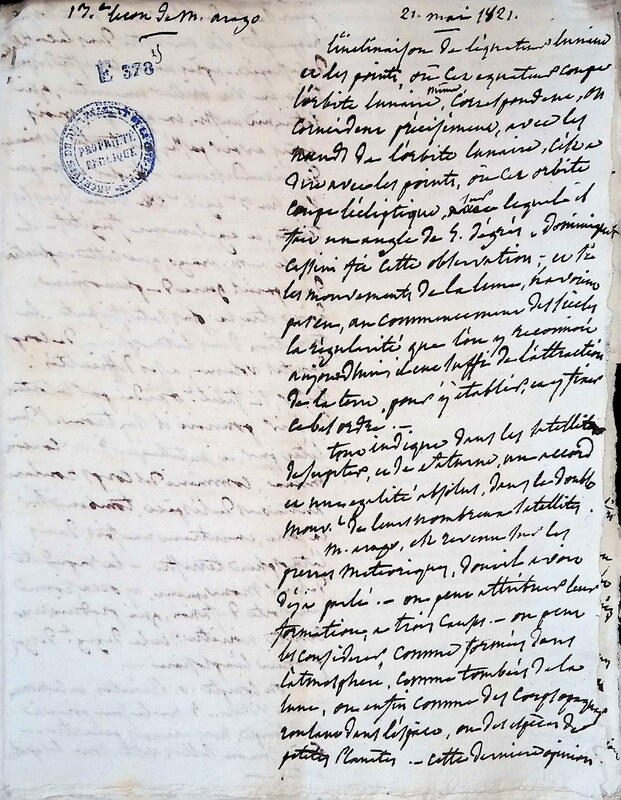 17.e lecon de M. arago
21. mai 1821.
E 378
15
PROPRIÉTÉ
PUBLIQUE
l'inclinaison de l'équateur lunaire
et les points, où cet equateur coupe
l'orbite lunaire même, correspondent, ou
coincident précisément, avec les
nœuds de l'orbite lunaire, c'est a
dire avec les points, ou cet orbite
coupe l'écliptique, sur lequel il
fait un angle de 5. degrés. Dominique
Cassini fit cette observation - et si
les mouvements de la lune, n'avoient
pas eu, au commencement des siecles
la régularité que l'on y reconnoit
aujourdhui il eut suffi de l'attraction
de la terre, pour y établir, et y fixer
ce bel ordre. -
tout indique dans les satellites
de Jupiter, et de saturne, un accord
et une egalité absolus, dans le double
mouv.t de leurs nombreux satellites.
M. arago, est revenu sur les
pierres météoriques, dont il avoit
déja parlé. - on peut attribuer leur
formation, a trois causes - on peut
les considerer comme formées dans
l'atmosphere, comme tombées de la
lune, ou enfin comme des corps
roulant dans l'espace, ou des espèces de
petites Planètes. - cette derniere opinion